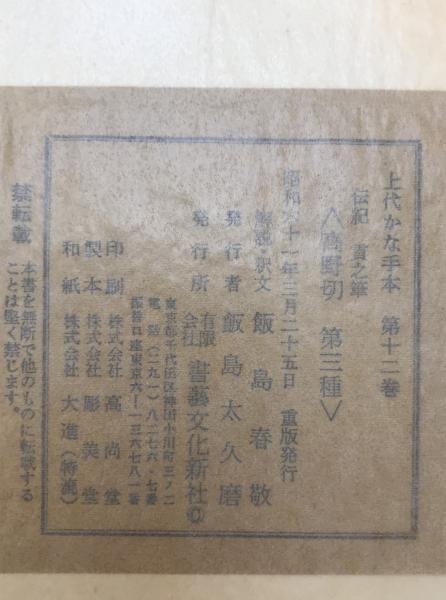 上代かな手本 第十二巻
伝紀 貫之筆
〈高野切 第三種〉
昭和六十一年三月二十五日 重版発行
解説・釈文 飯島春敬
発行者 飯島太久磨
発行所 有限会社 書藝文化新社©
東京都千代田区神田小川町三ノ二
電話(二九一)八二七六・七番
振替口座東京六ー一三六七八一番
印刷 株式会社 高尚堂
製本 株式会社 彫美堂
和紙 株式会社 大進(特漉)
禁転載 本書を無断で他のものに転載する
ことは堅く禁じます。